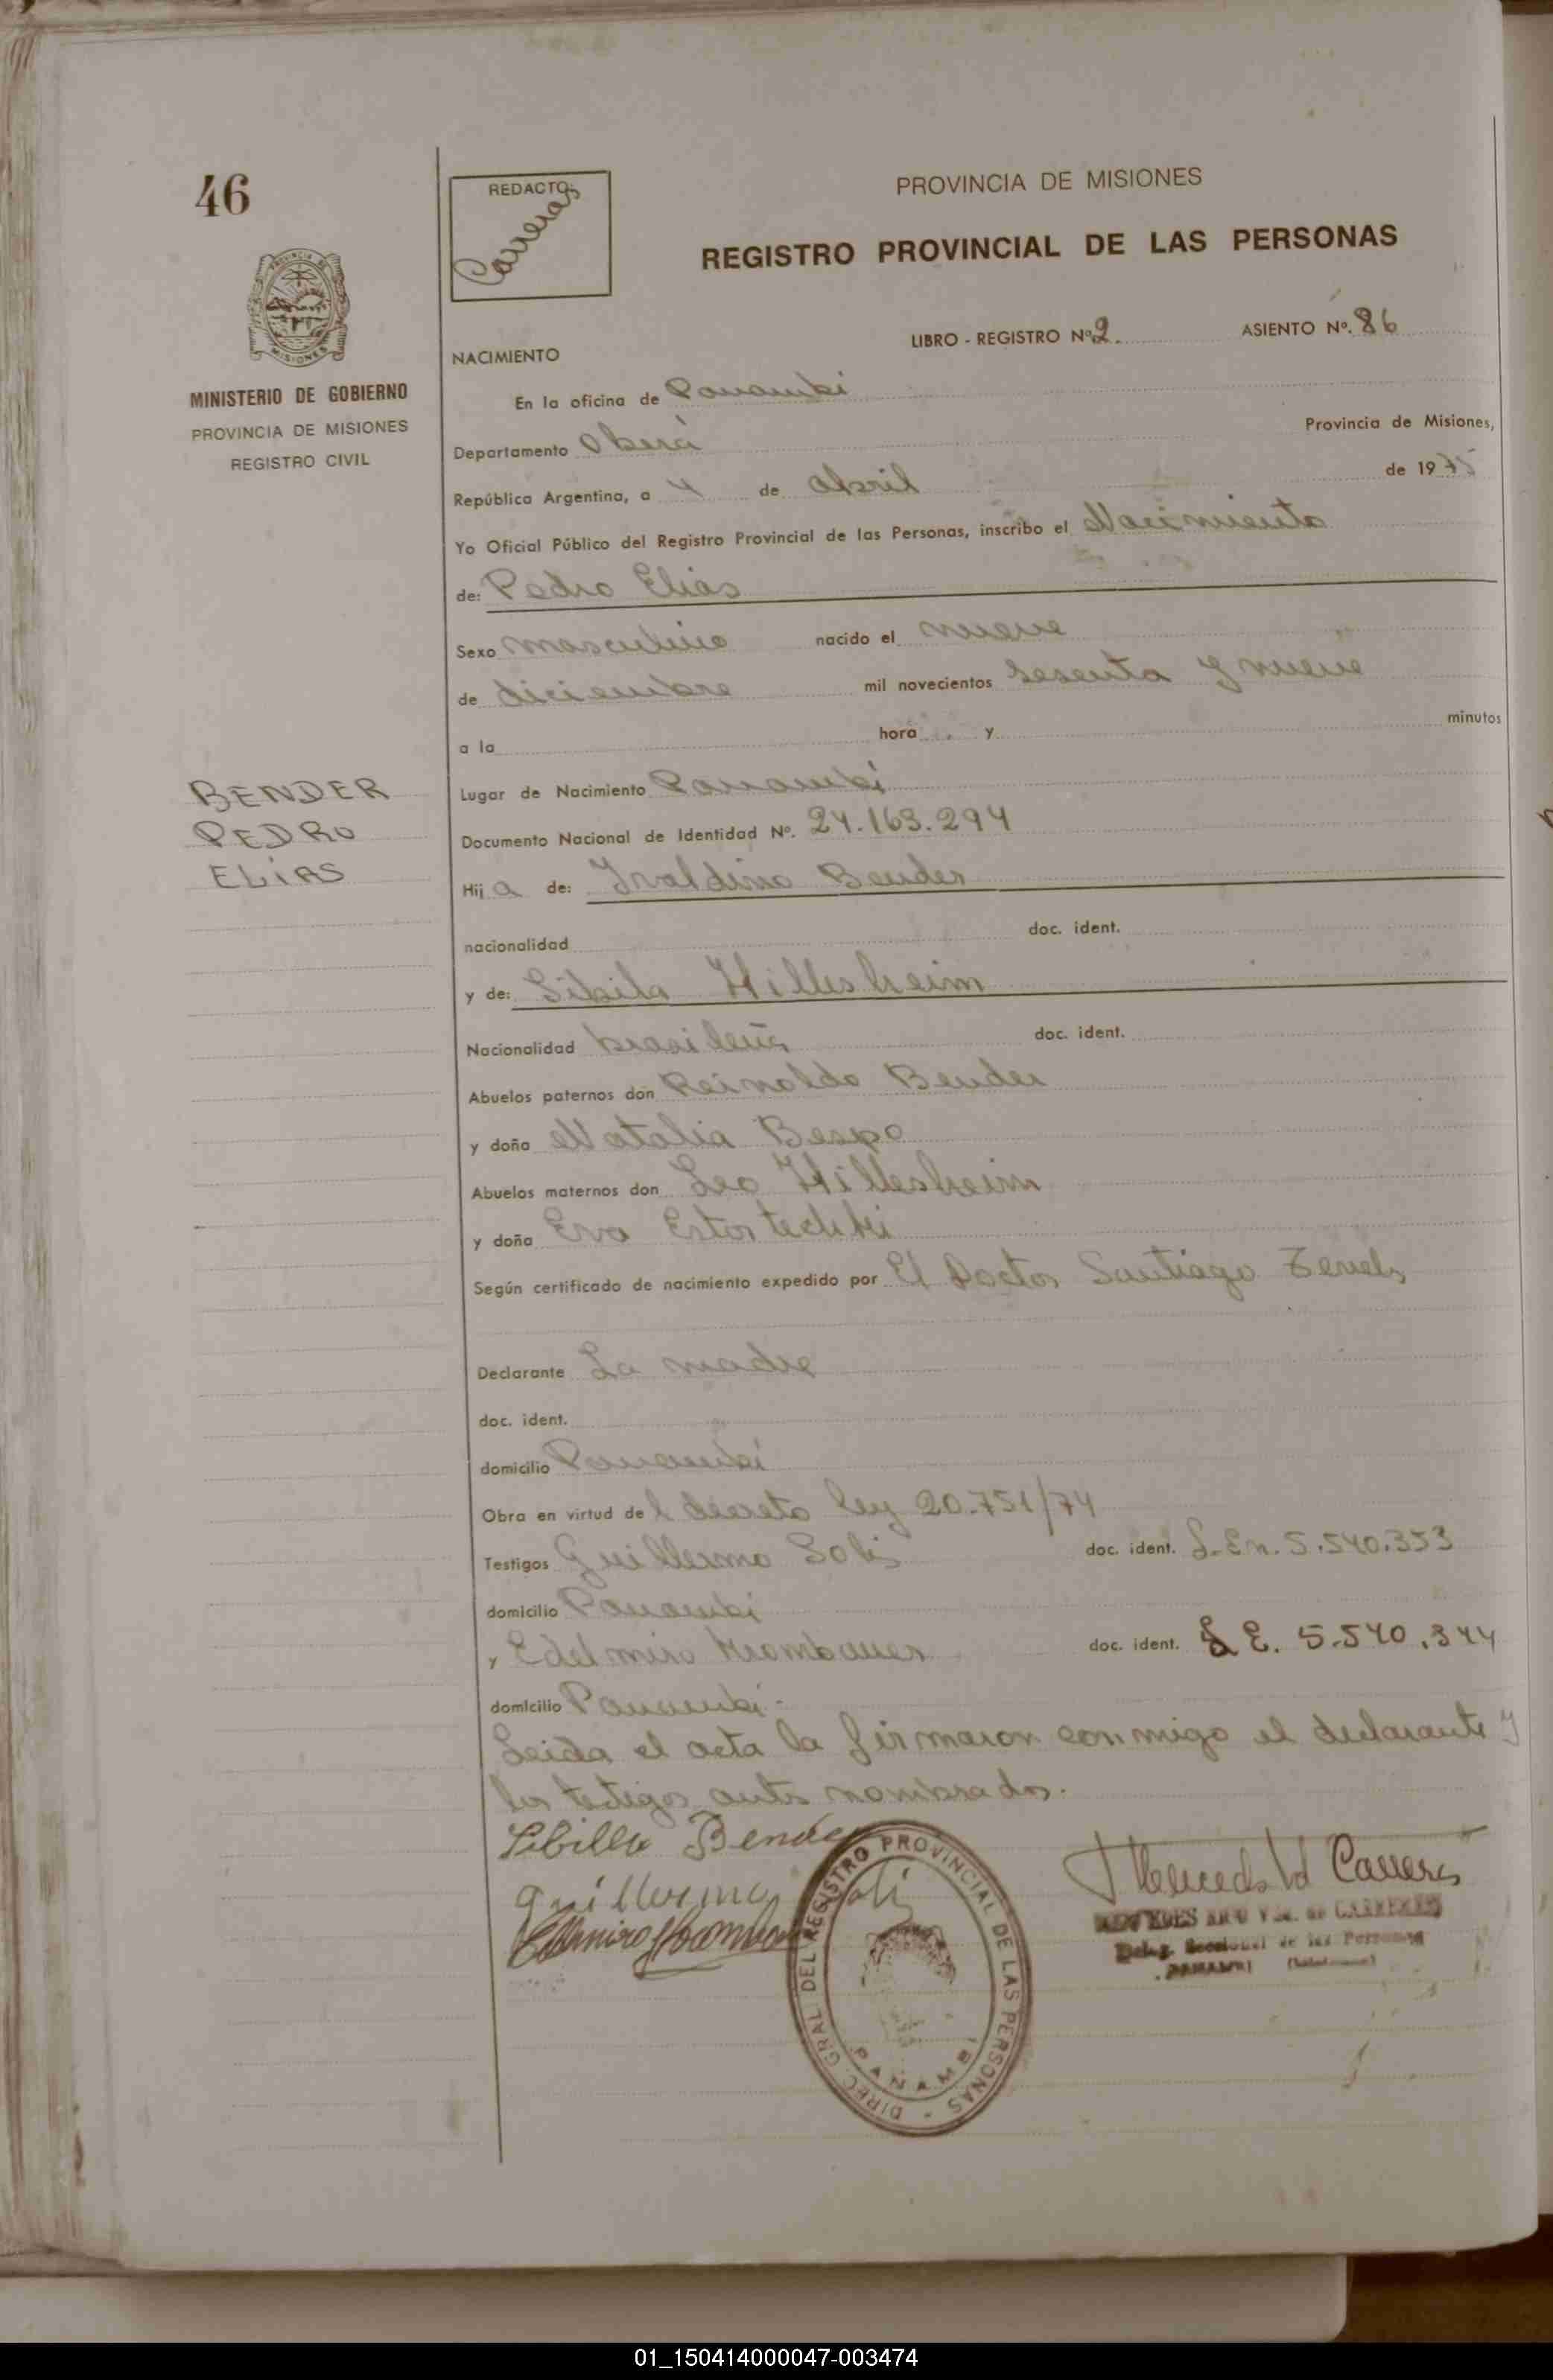 46
REDACTO:
Carreras
PROVINCIA DE MISIONES
REGISTRO PROVINCIAL DE LAS PERSONAS
MISIONES
MINISTERIO DE GOBIERNO
PROVINCIA DE MISIONES
REGISTRO CIVIL
LIBRO - REGISTRO Nº 2 ASIENTO Nº. 86
NACIMIENTO
En la oficina de Panambi
Departamento Oberá Provincia de Misiones,
República Argentina, a 4 de Abril de 1975
Yo Oficial Público del Registro Provincial de las Personas, inscribo el Nacimiento
de: Pedro Elias
Sexo masculino nacido el nueve
de diciembre mil novecientos sesenta y nueve
a la hora y minutos
BENDER
PEDRO
ELIAS
Lugar de Nacimiento Panambi
Documento Nacional de Identidad Nº. 24.163.294
Hij a de: Ivaldino Bender
nacionalidad doc. ident.
y de: Sibila Hillesheim
Nacionalidad brasileña doc. ident.
Abuelos paternos don Reinaldo Bender
y doña Natalia
Abuelos maternos don Leo Hillesheim
y doña Eva
Según certificado de nacimiento expedido por El Doctor Santiago
Declarante La madre
doc. ident.
domicilio Panambi
Obra en virtud de l decreto ley 20.751/74
Testigos Guillermo Solis doc. ident. 5.540.353
domicilio Panambi
y Edelmiro Krombauer doc. ident. L E. 5.540.344
domicilio Panambi.
Leida el acta la firmaron conmigo el declarante y
los testigos antes nombrados.
Sibilla Bender
Guillermo Solis
DIREC. GRAL. DEL REGISTRO PROVINCIAL DE LAS PERSONAS -
PANAMBI
Mercedes Vd Carreras
01_150414000047-003474